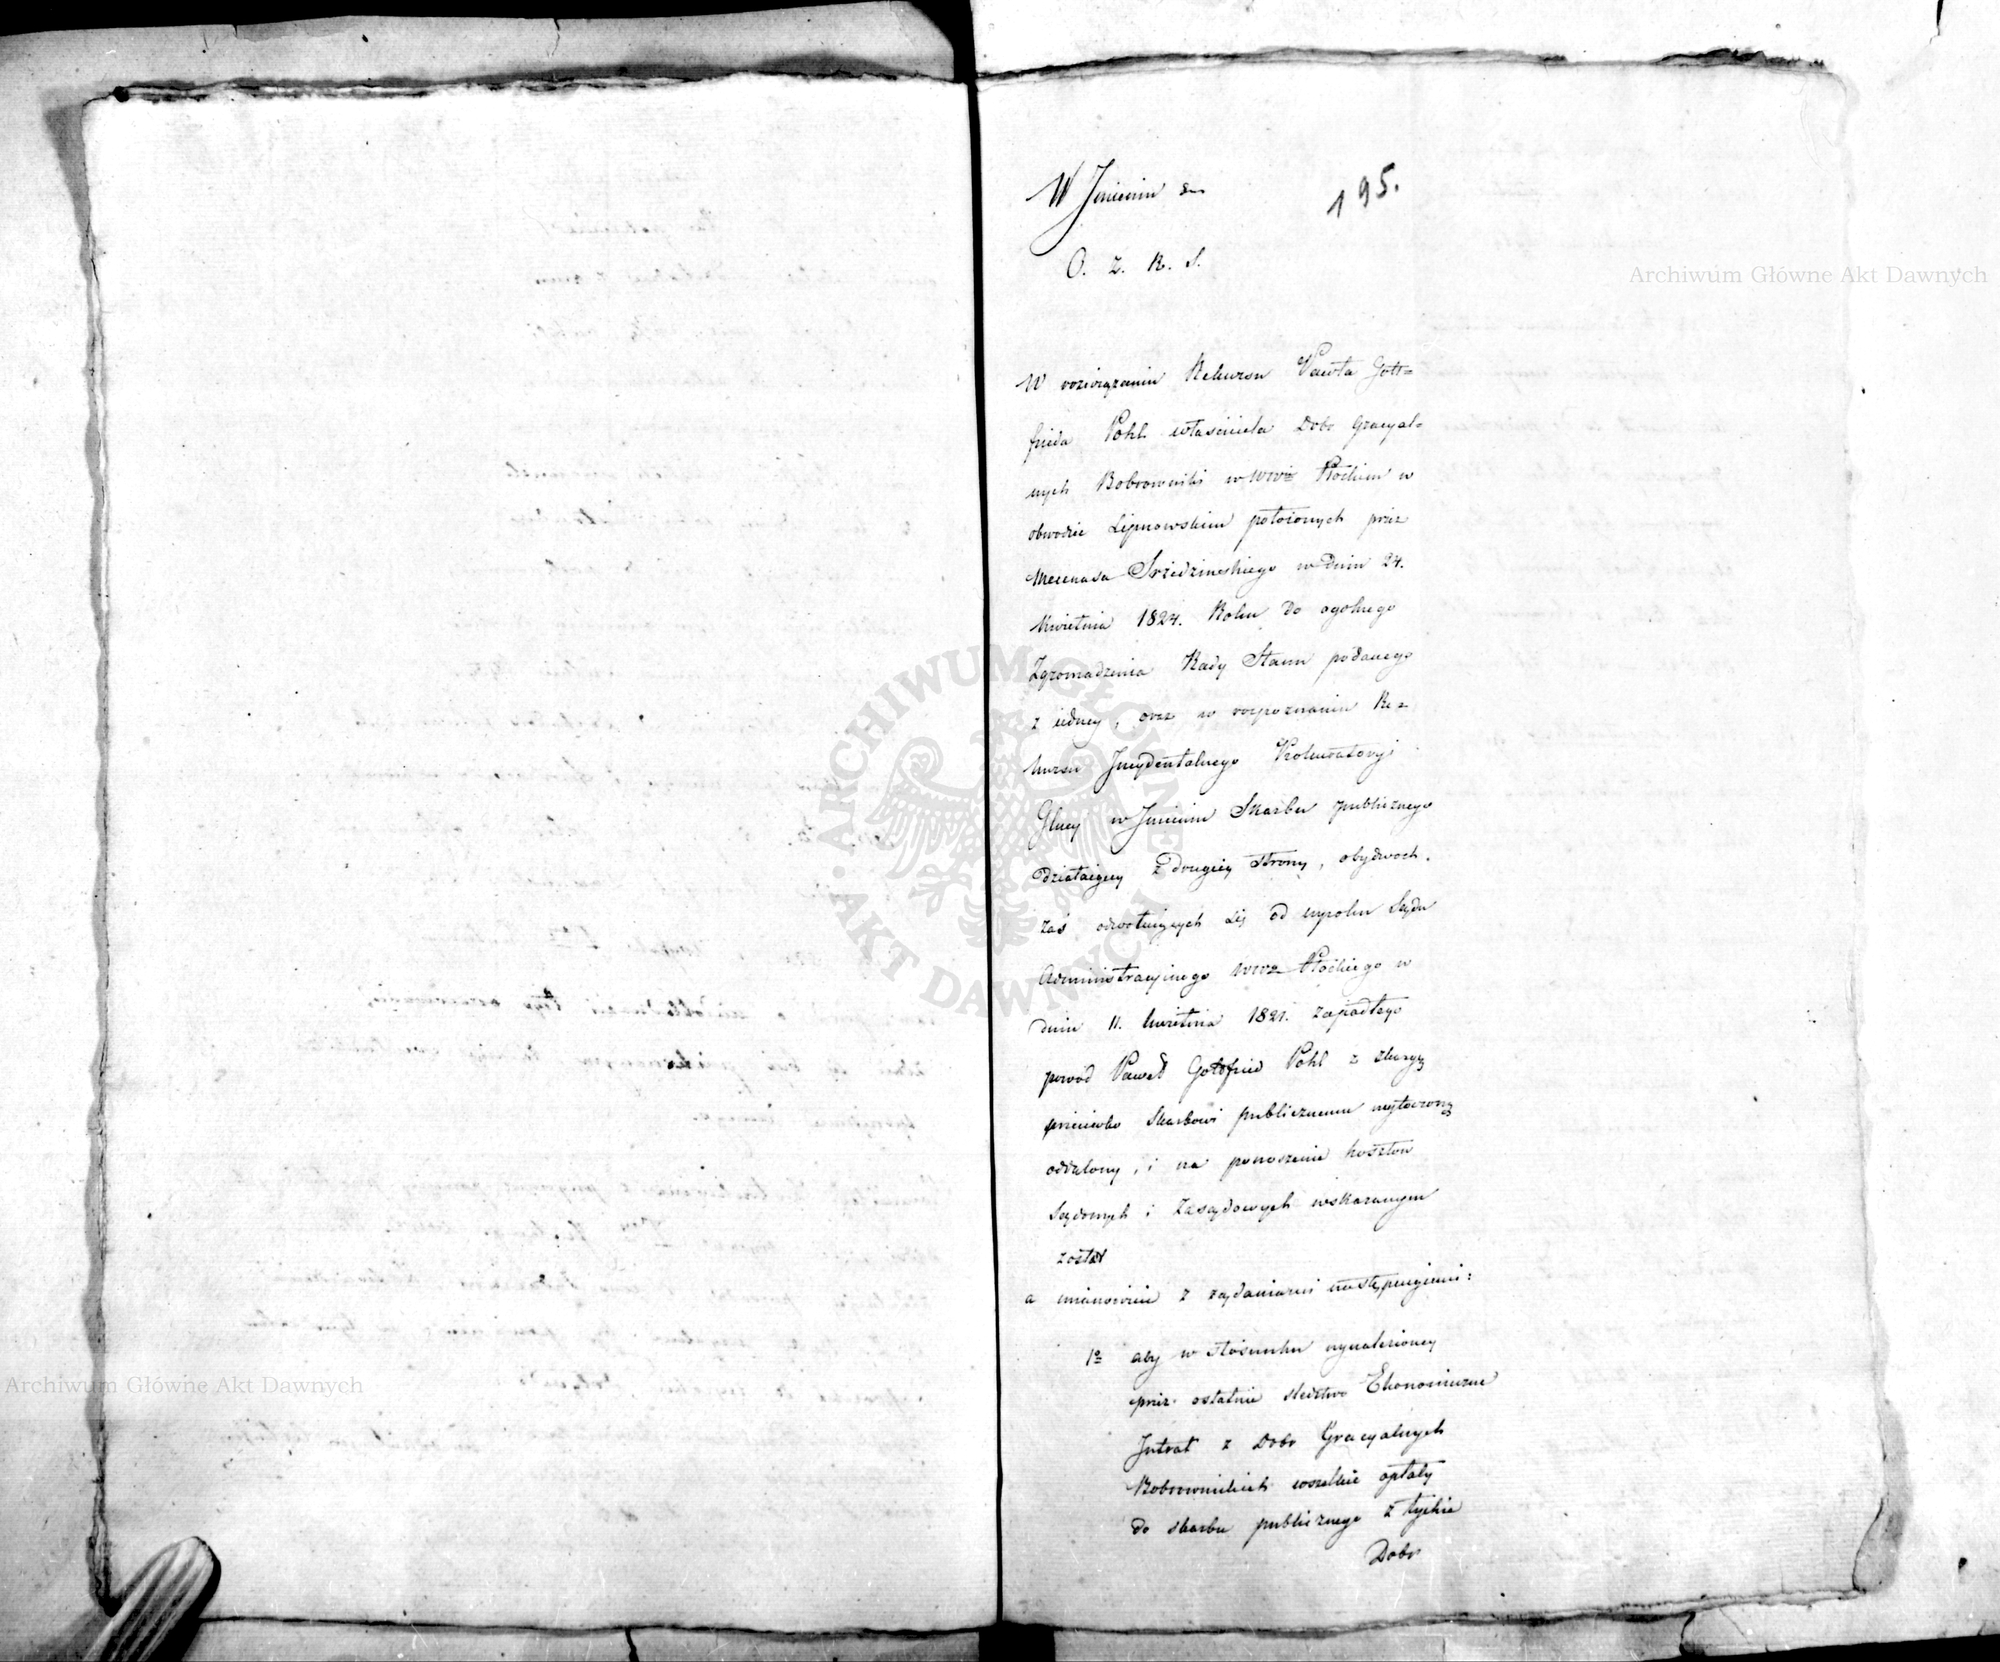 195.
W Jmieniu &c
O. Z. R. S.
W rozwiązaniu Rekursu Pawła Gott=
frieda Pohl właściciela Dobr Gracyal=
nych Bobrowniki w Wwie Płockim w
obwodzie Lipnowskim położonych przez
Mecenasa Srzedzińskiego w dniu 24.
Kwietnia 1824. Roku do ogolnego
Zgromadzenia Rady Stanu podanego
z iedney, oraz w rozpoznaniu Re=
kursu Jncydentalnego Prokuratoryi
Glney w Jmieniu Skarbu publicznego
działaiącey z drugiey strony, obydwoch
zaś odwołuiących się od wyroku Sądu
Administracyinego Wwa Płockiego w
dniu 11. kwietnia 1821. zapadłego
powód Paweł Gottfried Pohl z skargą
przeciwko Skarbowi publicznemu wytoczoną
oddalony, i na ponoszenie kosztow
Sądowych i Zasądowych wskazanym
został
a mianowicie z żądaniami następuiącemi:
1o aby w stosunku wynalezioney
przez ostatnie śledztwo Ekonomiczne
Jntrat z Dobr Gracyalnych
Bobrownickich wszelkie opłaty
do skarbu publicznego z tychże
Dobr
Archiwum Główne Akt Dawnych
Archiwum Główne Akt Dawnych
ARCHIWUM GŁÓWNE AKT DAWNYCH